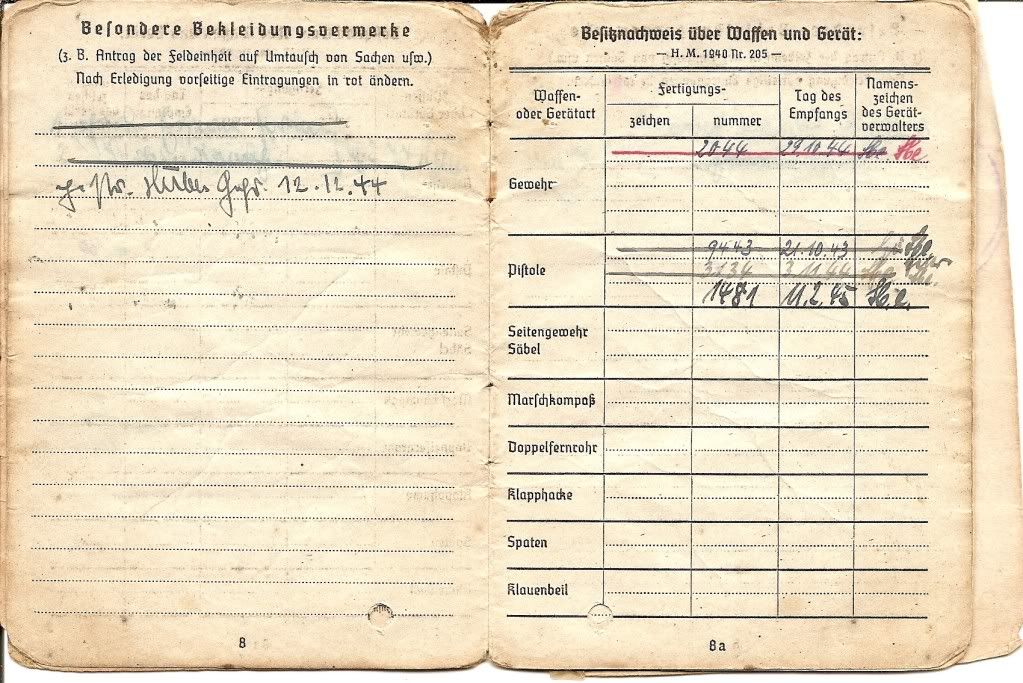 Besondere Bekleidungsvermerke
(z. B. Antrag der Feldeinheit auf Umtausch von Sachen usw.)
Nach Erledigung vorseitige Eintragungen in rot ändern.
12.12.44
8
Besitznachweis über Waffen und Gerät:
— H. M. 1940 Nr. 205 —
Waffen- oder Gerätart
Fertigungs-
zeichen
nummer
Tag des Empfangs
Namens-zeichen des Gerät-verwalters
Gewehr
2044 29.10.44 He He
Pistole
9443 21.10.43
3134 3.11.44
1481 11.2.45 He.
Seitengewehr
Säbel
Marschkompaß
Doppelfernrohr
Klapphacke
Spaten
Klauenbeil
8a